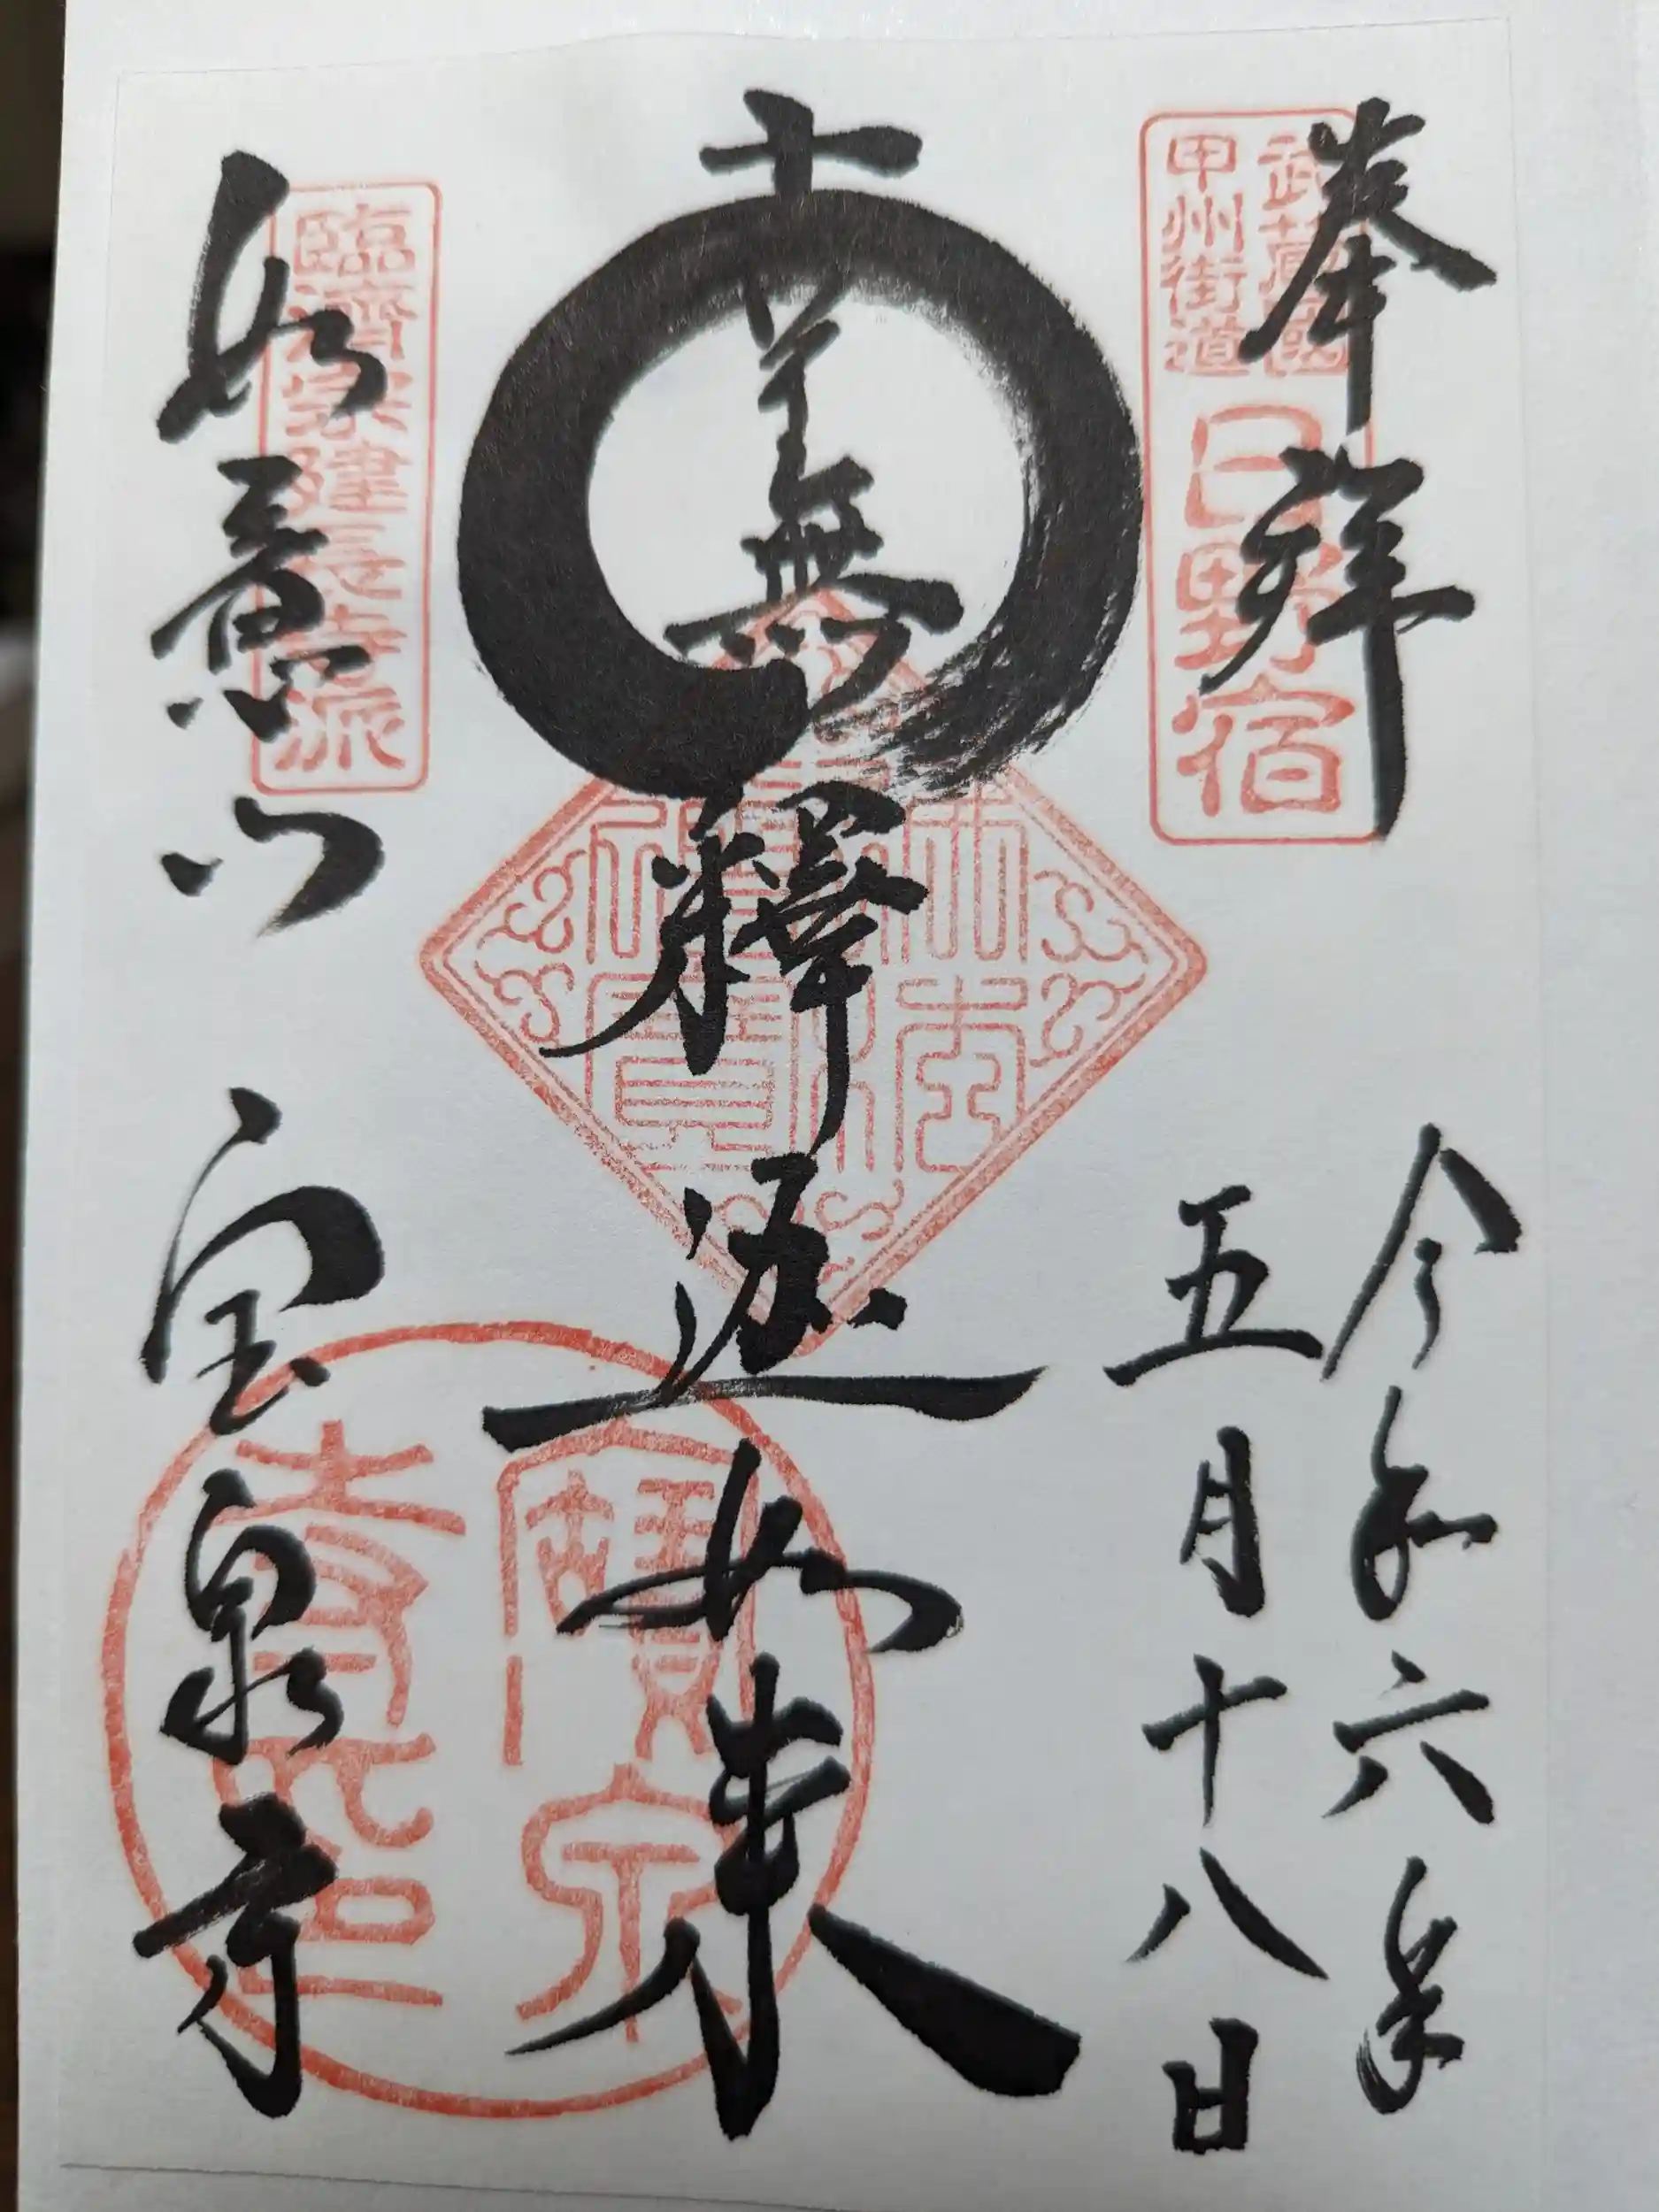 奉拝
武蔵國
甲州街道
日野宿
令和六年
五月十八日
南無釋迦如来
臨濟宗建長寺派
如意山 宝泉寺
寶泉
寺印